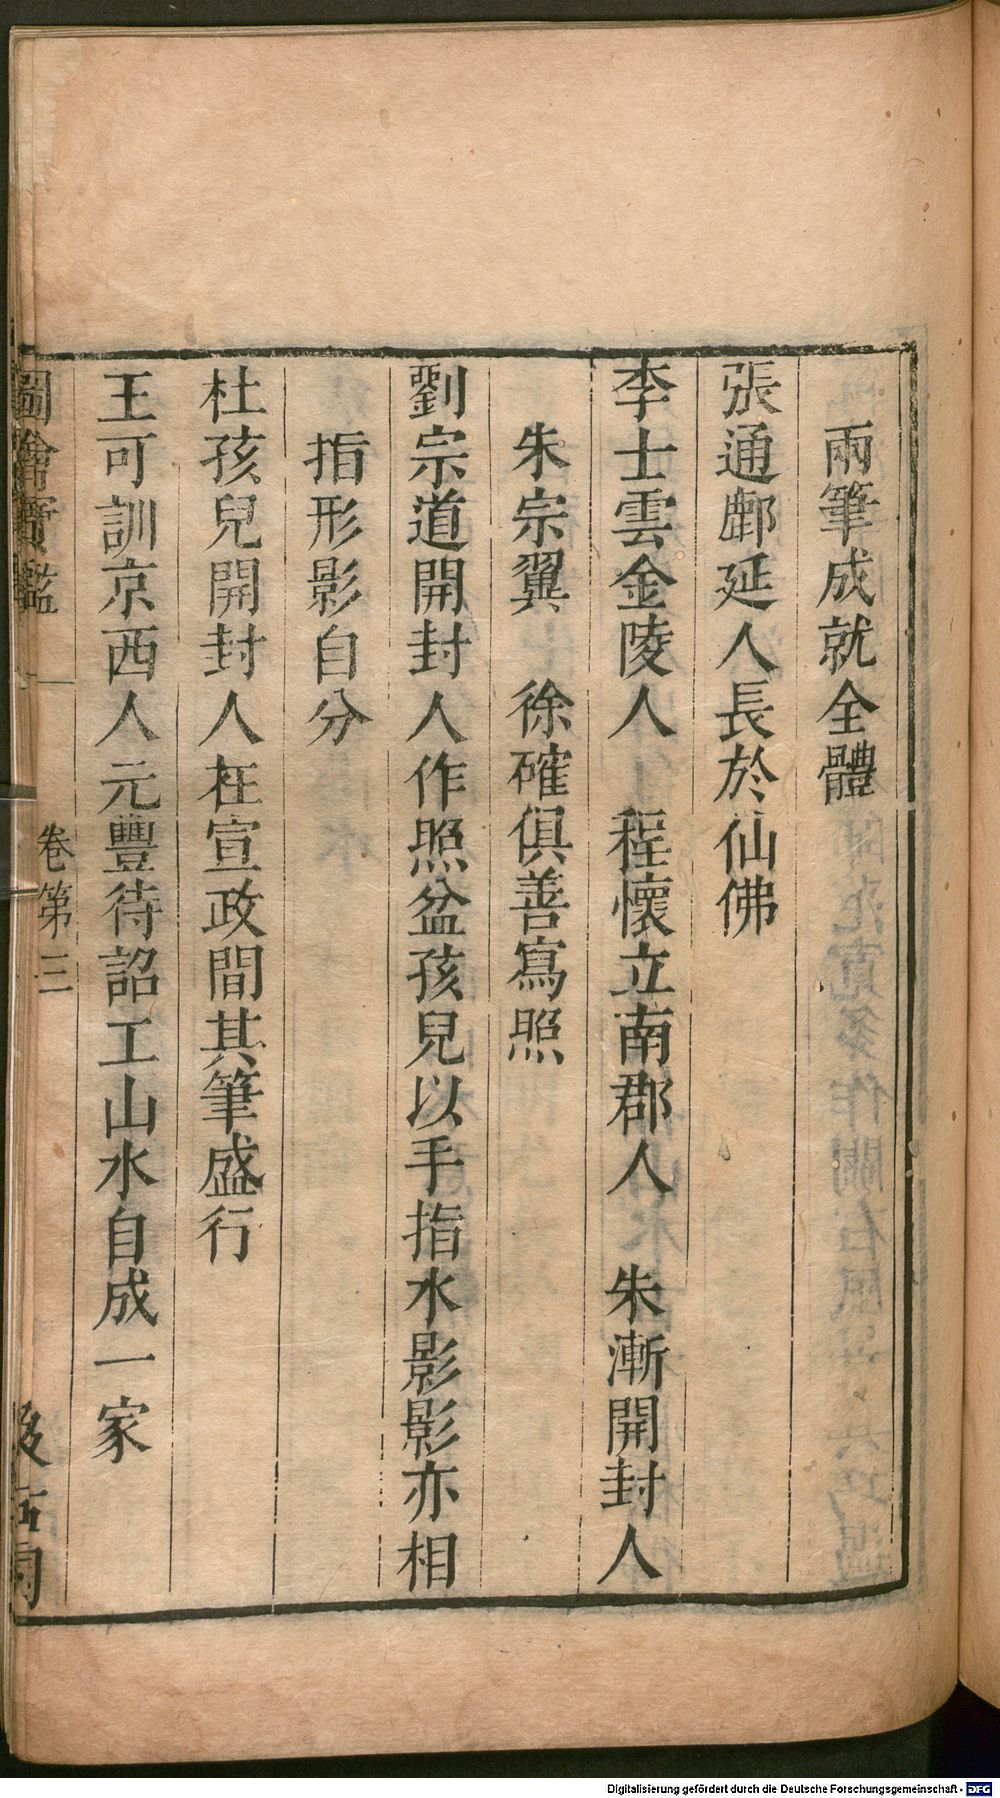 兩筆成就全體
張通鄜延人長於仙佛
李士雲金陵人　程懷立南郡人　朱漸開封人
朱宗翼　徐確俱善寫照
劉宗道開封人作照盆孩兒以手指水影影亦相
指形影自分
杜孩兒開封人在宣政間其筆盛行
王可訓京西人元豐待詔工山水自成一家
圖繪寶鑑　卷第三　汲古閣
Digitalisierung gefördert durch die Deutsche Forschungsgemeinschaft - DFG